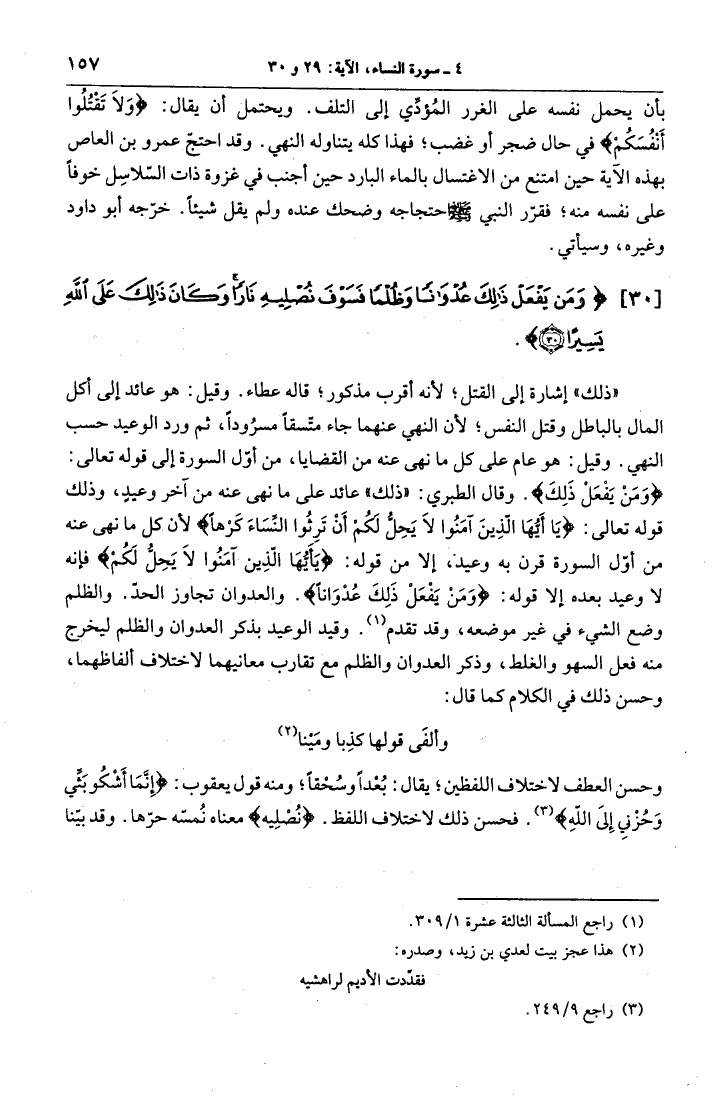 ٤ ـ سورة النساء، الآية: ٢٩ و ٣٠ ١٥٧
بأن يحمل نفسه على الغرر المُؤدِّي إلى التلف. ويحتمل أن يقال: ﴿وَلاَ تَقْتُلُوا
أَنْفُسَكُمْ﴾ في حال ضجر أو غضب؛ فهذا كله يتناوله النهي. وقد احتجّ عمرو بن العاص
بهذه الآية حين امتنع من الاغتسال بالماء البارد حين أجنب في غزوة ذات السّلاسِل خوفاً
على نفسه منه؛ فقرّر النبي ﷺ احتجاجه وضحك عنده ولم يقل شيئاً. خرّجه أبو داود
وغيره، وسيأتي.
[٣٠] ﴿ وَمَن يَفْعَلْ ذَٰلِكَ عُدْوَانًا وَظُلْمًا فَسَوْفَ نُصْلِيهِ نَارًا وَكَانَ ذَٰلِكَ عَلَى ٱللَّهِ
يَسِيرًا ۝٣٠﴾.
«ذلك» إشارة إلى القتل؛ لأنه أقرب مذكور؛ قاله عطاء. وقيل: هو عائد إلى أكل
المال بالباطل وقتل النفس؛ لأن النهي عنهما جاء متّسقاً مسرُوداً، ثم ورد الوعيد حسب
النهي. وقيل: هو عام على كل ما نهى عنه من القضايا، من أوّل السورة إلى قوله تعالى:
﴿وَمَنْ يَفْعَلْ ذَلِكَ﴾. وقال الطبري: «ذلك» عائد على ما نهى عنه من آخر وعيدٍ، وذلك
قوله تعالى: ﴿يَا أَيُّهَا الَّذِينَ آمَنُوا لاَ يَحِلُّ لَكُمْ أَنْ تَرِثُوا النِّسَاءَ كَرْهاً﴾ لأن كل ما نهى عنه
من أوّل السورة قرن به وعيد، إلا من قوله: ﴿يَأَيُّهَا الَّذِين آمَنُوا لاَ يَحِلُّ لَكُمْ﴾ فإنه
لا وعيد بعده إلا قوله: ﴿وَمَنْ يَفْعَلْ ذَلِكَ عُدْوَاناً﴾. والعدوان تجاوز الحدّ. والظلم
وضع الشيء في غير موضعه، وقد تقدم(١). وقيد الوعيد بذكر العدوان والظلم ليخرج
منه فعل السهو والغلط، وذكر العدوان والظلم مع تقارب معانيهما لاختلاف ألفاظهما،
وحسن ذلك في الكلام كما قال:
وألفَى قولها كذِبا ومَيْنا(٢)
وحسن العطف لاختلاف اللفظين؛ يقال: بُعْداً وسُحْقاً؛ ومنه قول يعقوب: ﴿إِنَّمَا أَشْكُو بَثِّي
وَحُزْنِي إِلَى اللَّهِ﴾(٣). فحسن ذلك لاختلاف اللفظ. ﴿نُصْلِيه﴾ معناه نُمسّه حرّها. وقد بيّنا
(١) راجع المسألة الثالثة عشرة ٣٠٩/١.
(٢) هذا عجز بيت لعدي بن زيد، وصدره:
فقدّدت الأديم لراهشيه
(٣) راجع ٢٤٩/٩.